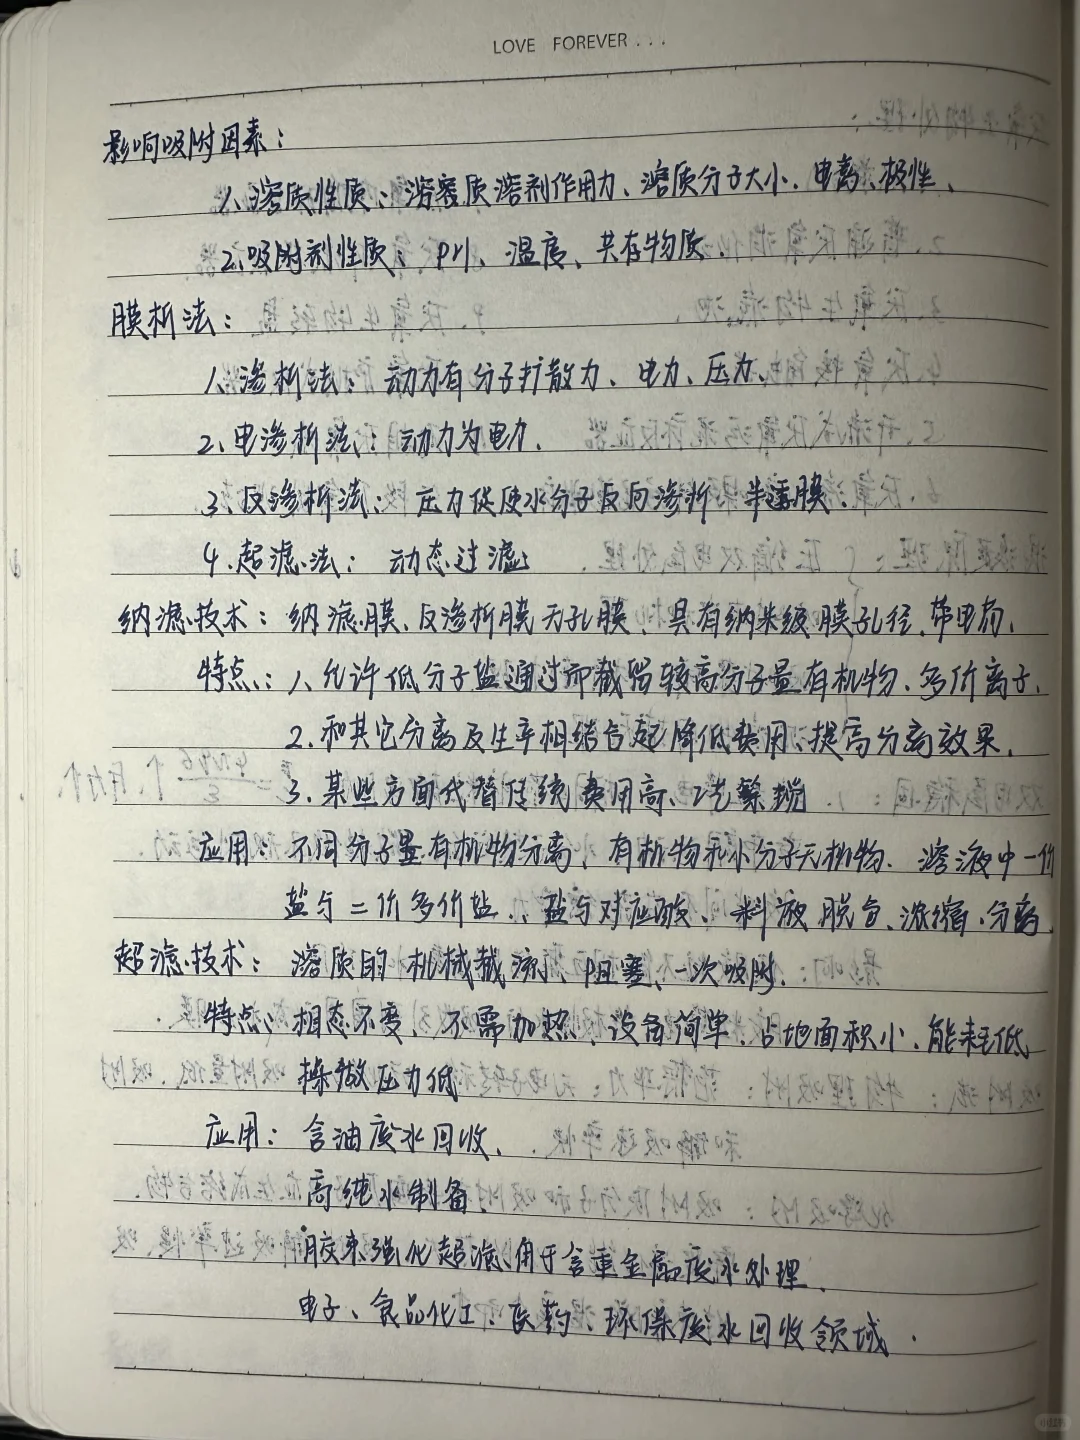 LOVE FOREVER...
影响吸附因素：
1、溶质性质：溶溶质溶剂作用力、溶质分子大小、电离、极性、
2、吸附剂性质、PH、温度、共存物质.
膜析法：
1、渗析法：动力有分子扩散力、电力、压力、
2、电渗析法：动力为电力.
3、反渗析法：压力促使水分子反向渗析 半透膜.
4.超滤法：动态过滤
纳滤技术：纳滤膜、反渗析膜无孔膜、具有纳米级膜孔径、带电荷、
特点：1、允许低分子盐通过而截留较高分子量有机物、多价离子、
2.和其它分离及生产相结合起降低费用、提高分离效果.
3.某些方面代替传统费用高、工艺繁琐
应用：不同分子量有机物分离、有机物和小分子无机物.溶液中一价
盐与二价多价盐、盐与对应酸、料液脱色、浓缩、分离
超滤技术：溶质的机械截流、阻塞、一次吸附.
特点：相态不变、不需加热、设备简单、占地面积小、能耗低
操做压力低
应用：含油废水回收、
高纯水制备
胶束强化超滤用于含重金属废水处理.
电子、食品化工、医药、环保废水回收领域.
小红书